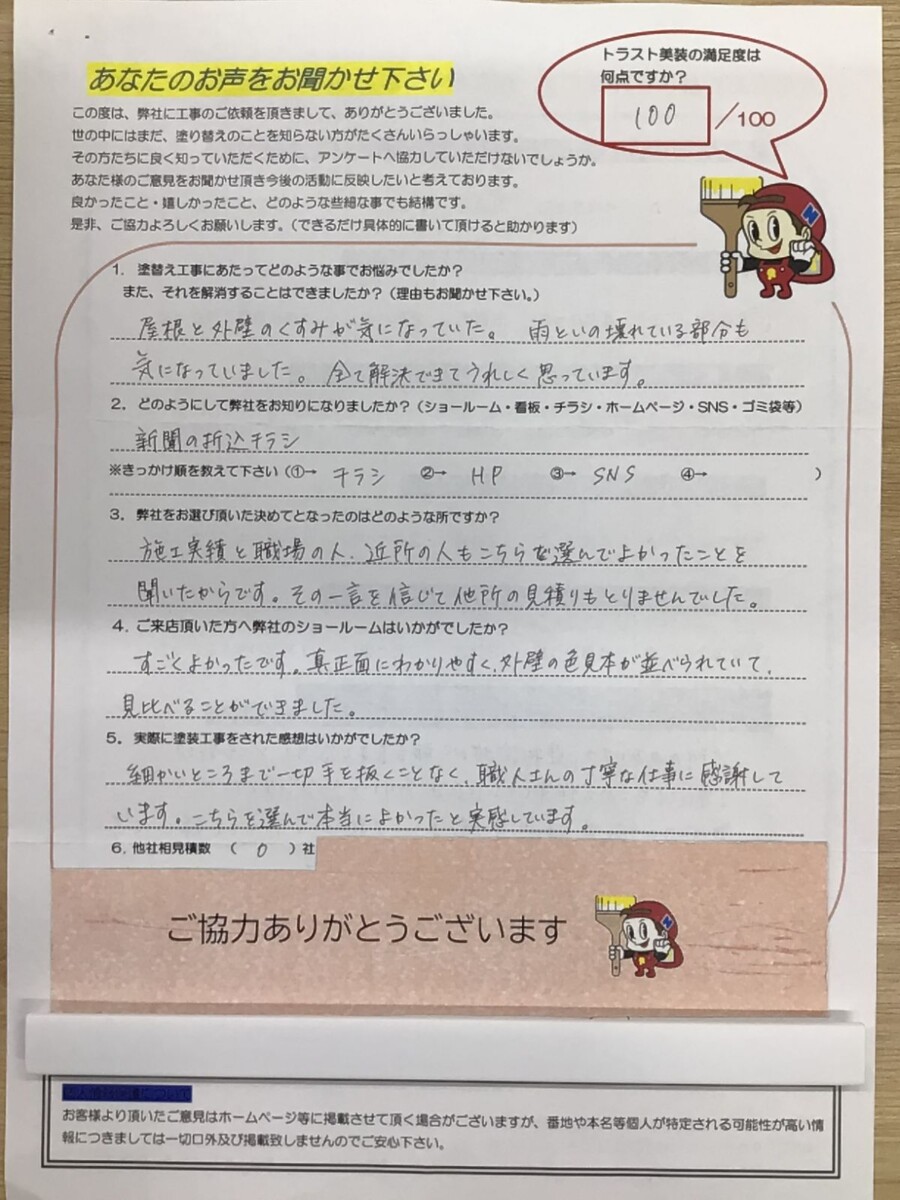 あなたのお声をお聞かせ下さい
トラスト美装の満足度は
何点ですか？
100 /100
この度は、弊社に工事のご依頼を頂きまして、ありがとうございました。
世の中にはまだ、塗り替えのことを知らない方がたくさんいらっしゃいます。
その方たちに良く知っていただくために、アンケートへ協力していただけないでしょうか。
あなた様のご意見をお聞かせ頂き今後の活動に反映したいと考えております。
良かったこと・嬉しかったこと、どのような些細な事でも結構です。
是非、ご協力よろしくお願いします。（できるだけ具体的に書いて頂けると助かります）
N
1． 塗替え工事にあたってどのような事でお悩みでしたか？
また、それを解消することはできましたか？（理由もお聞かせ下さい。）
屋根と外壁のくすみが気になっていた。 雨といの壊れている部分も
気になっていました。 全て解決できてうれしく思っています。
2． どのようにして弊社をお知りになりましたか？（ショールーム・看板・チラシ・ホームページ・SNS・ゴミ袋等）
新聞の折込チラシ
※きっかけ順を教えて下さい（①→ チラシ ②→ HP ③→ SNS ④→ ）
3． 弊社をお選び頂いた決めてとなったのはどのような所ですか？
施工実績と職場の人、近所の人もこちらを選んでよかったことを
聞いたからです。その一言を信じて他所の見積りもとりませんでした。
4． ご来店頂いた方へ弊社のショールームはいかがでしたか？
すごくよかったです。真正面にわかりやすく、外壁の色見本が並べられていて、
見比べることができました。
5． 実際に塗装工事をされた感想はいかがでしたか？
細かいところまで一切手を抜くことなく、職人さんの丁寧な仕事に感謝して
います。こちらを選んで本当によかったと実感しています。
6．他社相見積数 （ 0 ）社
ご協力ありがとうございます
N
個人情報保護について
お客様より頂いたご意見はホームページ等に掲載させて頂く場合がございますが、番地や本名等個人が特定される可能性が高い情
報につきましては一切口外及び掲載致しませんのでご安心下さい。